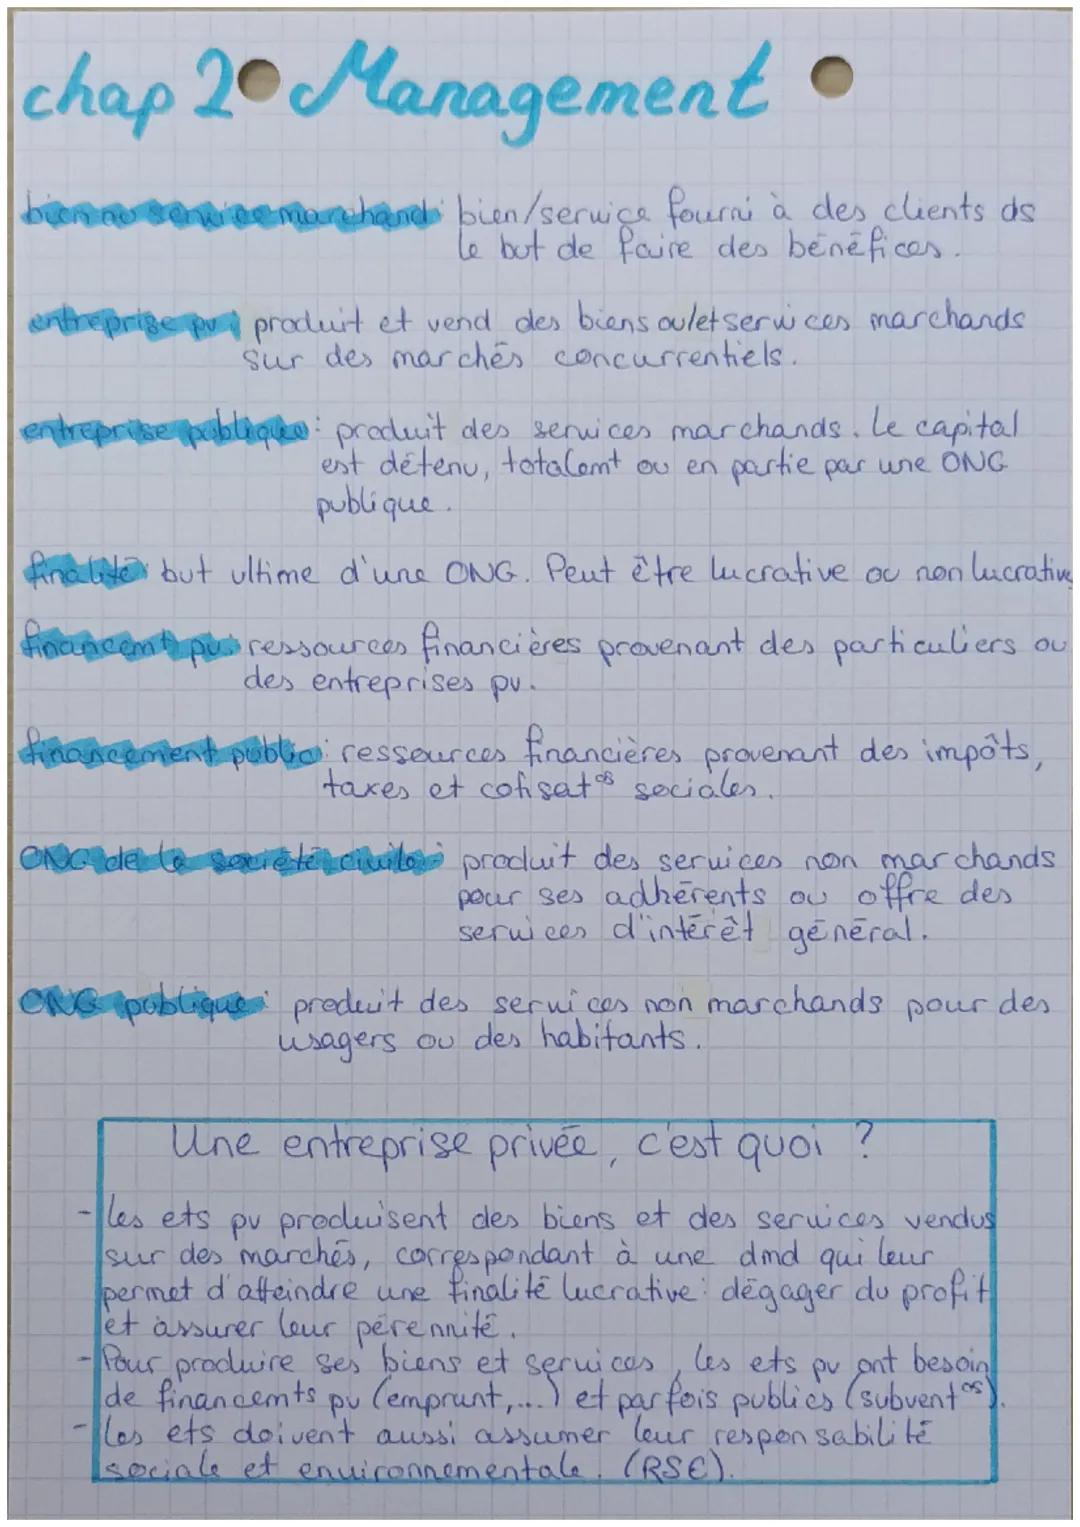 chap 2 Management
bien ou service marchand: bien/service fourni à des clients ds
le but de faire des bénéfices.
entreprise pv: produit et vend des biens ou/et services marchands
sur des marchés concurrentiels.
entreprise publique: produit des services marchands. Le capital
est détenu, totalemt ou en partie par une ONG
publique.
finalité: but ultime d'une ONG. Peut être lucrative ou non lucrative
financemt pv: ressources financières provenant des particuliers ou
des entreprises pv.
financement public: ressources financières provenant des impôts,
taxes et cotisatos sociales.
ONG de la société civile: produit des services non marchands
pour ses adhérents ou offre des
services d'intérêt général.
ONG publique: produit des services non marchands pour des
usagers ou des habitants.
Une entreprise privée, c'est quoi ?
- les ets pv produisent des biens et des services vendus
sur des marchés, correspondant à une dmd qui leur
permet d'atteindre une finalité lucrative: dégager du profit
et assurer leur pérennité.
- Pour produire ses biens et services, les ets pv ont besoin
de financemts pv (emprunt,...) et parfois publics (subventos).
- les ets doivent aussi assumer leur responsabilité
sociale et environnementale. (RSE).